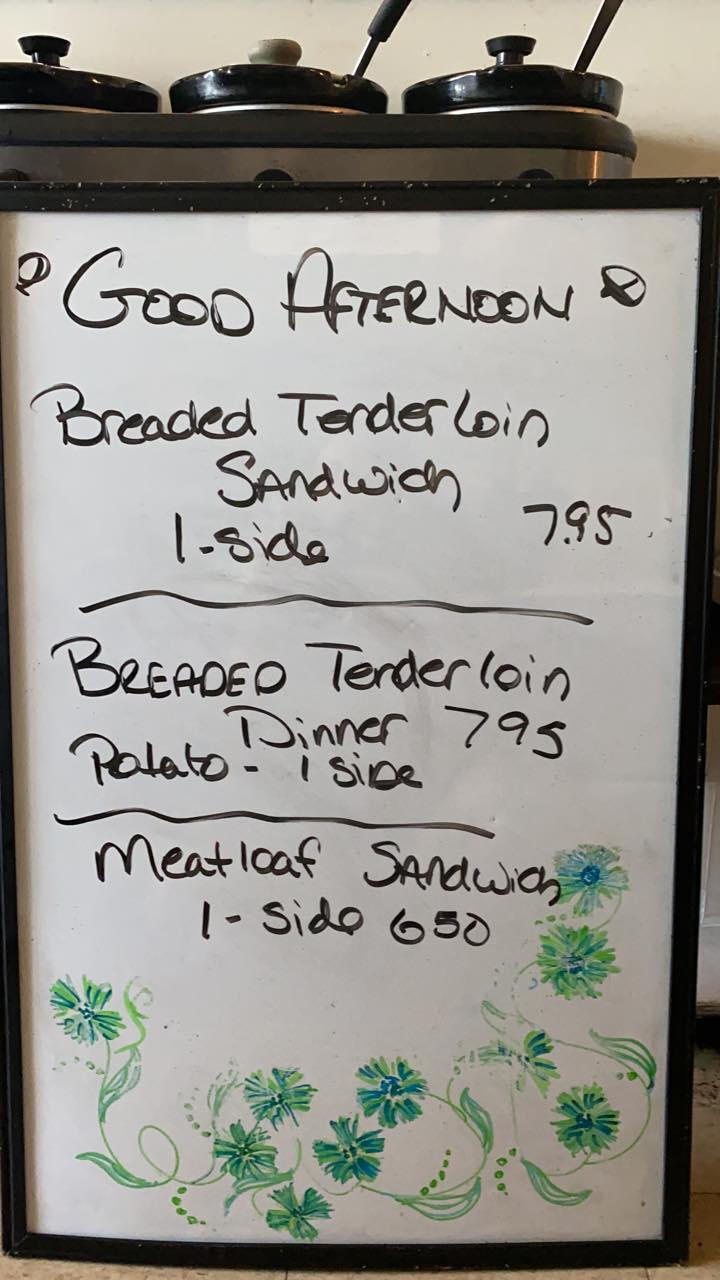 GOOD AFTERNOON
Breaded Tenderloin
SANdwich
1-side 7.95
BREADED Tenderloin
Dinner 795
Potato - 1 SIDE
Meatloaf SANdwich
1- Side 650